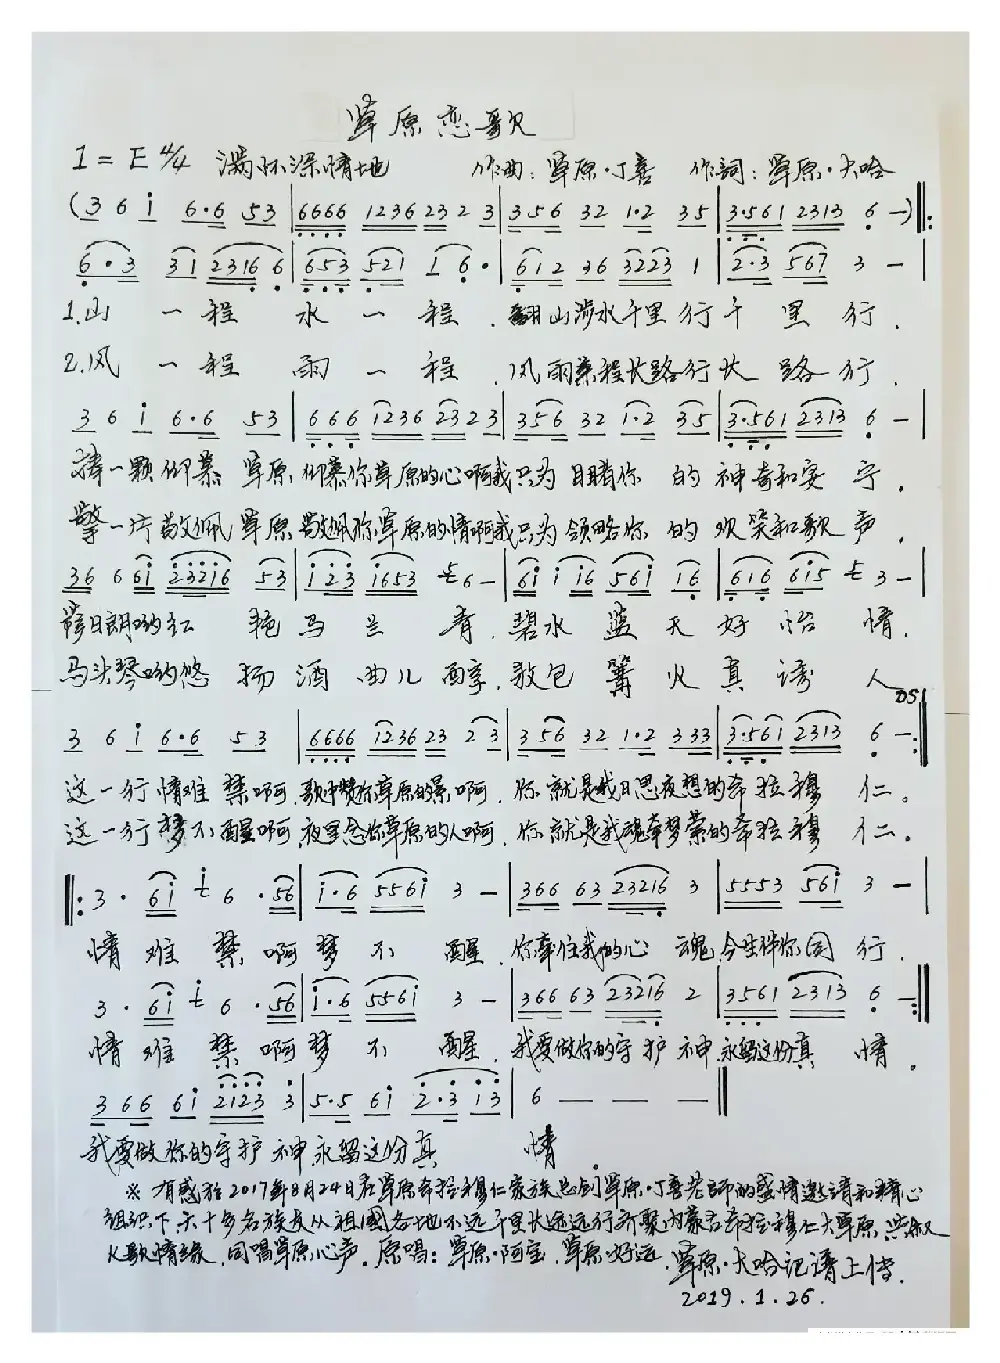 草原恋歌
1=E 4/4 满怀深情地 作曲：草原·丁喜 作詞：草原·大哈
(3 6 i 6·6 53 | 6666 1236 23 2 3 | 356 32 1·2 35 | 3·561 2313 6 —)
6·3 31 2316 6 | 653 521 1 6· | 612 36 3223 1 | 2·3 567 3 —
1.山一程水一程．翻山涉水千里行千里行．
2.风一程雨一程．风雨兼程长路行长路行．
3 6 i 6·6 53 | 666 1236 23 23 | 356 32 1·2 35 | 3·561 2313 6 —
捧一颗仰慕草原仰慕你草原的心啊我只为目睹你的神奇和安宁．
擎一片敬佩草原敬佩你草原的情啊我只为领略你的欢笑和歌声．
36 6 6i 23216 53 | i23 i653 6 — | 6i i i6 56i i6 | 6i6 6i5 3 —
萨日朗哟红艳马兰青．碧水蓝天好怡情．
马头琴哟悠扬酒曲儿醇．敖包篝火真诱人
DS1
3 6 i 6·6 53 | 6666 1236 23 23 | 356 32 1·2 333 | 3·561 2313 6 —
这一行情难禁啊．歌中赞你草原的景啊．你就是我日思夜想的希拉穆仁。
这一行梦不醒啊．夜里念你草原的人啊．你就是我魂牵梦萦的希拉穆仁。
3· 6i 6·56 | i·6 556i 3 — | 366 63 23216 3 | 5553 56i 3 —
情难禁啊梦不醒．你牵住我的心魂．今生伴你同行．
3· 6i 6·56 | i·6 556i 3 — | 366 63 23216 2 | 3561 2313 6 —
情难禁啊梦不醒．我要做你的守护神．永留这份真情．
366 6i 2123 3 | 5·5 6i 2·3 i3 | 6 — — —
我要做你的守护神永留这份真情
※ 有感於2017年8月24日在草原希拉穆仁家族总创草原·丁喜老師的盛情邀请和精心
组织下六十多名族友从祖國各地不远千里长途远行齐聚内蒙古希拉穆仁大草原．共叙
火歌情缘．同唱草原心声．原唱：草原·阿宝．草原·好运．草原·大哈记谱上传．
2019.1.26.